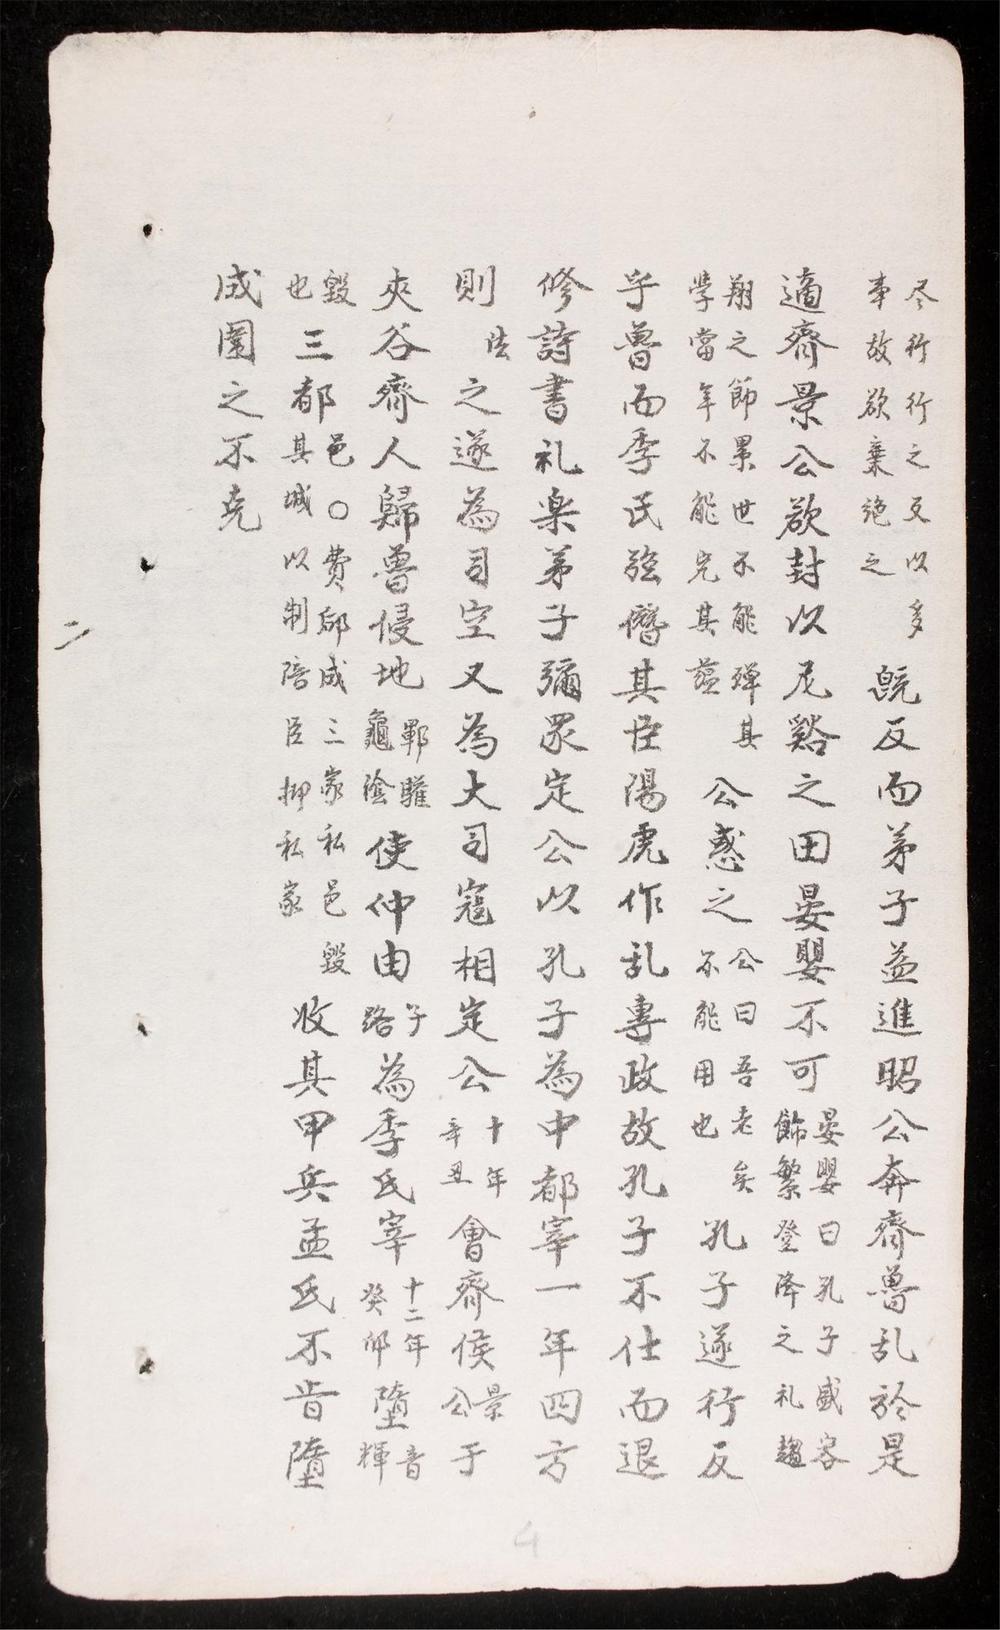 尽行行之反以多
事故欲棄绝之
既反而弟子益進昭公奔齊魯乱於是
適齊景公欲封以尼谿之田晏嬰不可
晏嬰曰孔子盛容
飾繁登降之礼趨
翔之節累世不能殫其
學當年不能究其蕴
公惑之
公曰吾老矣
不能用也
孔子遂行反
乎魯而季氏强僭其臣陽虎作乱專政故孔子不仕而退
修詩書礼楽弟子彌眾定公以孔子為中都宰一年四方
則
法
之遂為司空又為大司寇相定公
十年
辛丑
會齊侯
景
公
于
夾谷齊人歸魯侵地
鄆驩
龜陰
使仲由
子
路
為季氏宰
十二年
癸卯
墮
音
輝
毀
也
三都
邑〇費郈成三家私邑毀
其城以制陪臣抑私家
收其甲兵孟氏不肯墮
成圍之不克
二
4